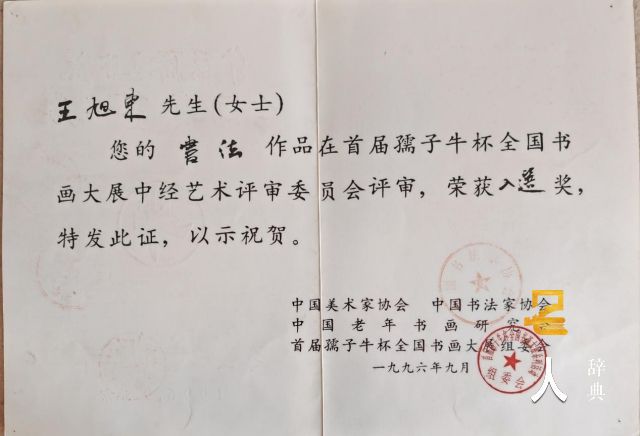 王旭東 先生(女士)
您的 書法 作品在首届孺子牛杯全国书
画大展中经艺术评审委员会评审，荣获入選奖，
特发此证，以示祝贺。
中国美术家协会 中国书法家协会
中国老年书画研究会
首届孺子牛杯全国书画大展组委会
一九九六年九月
组委会
名人
辞典